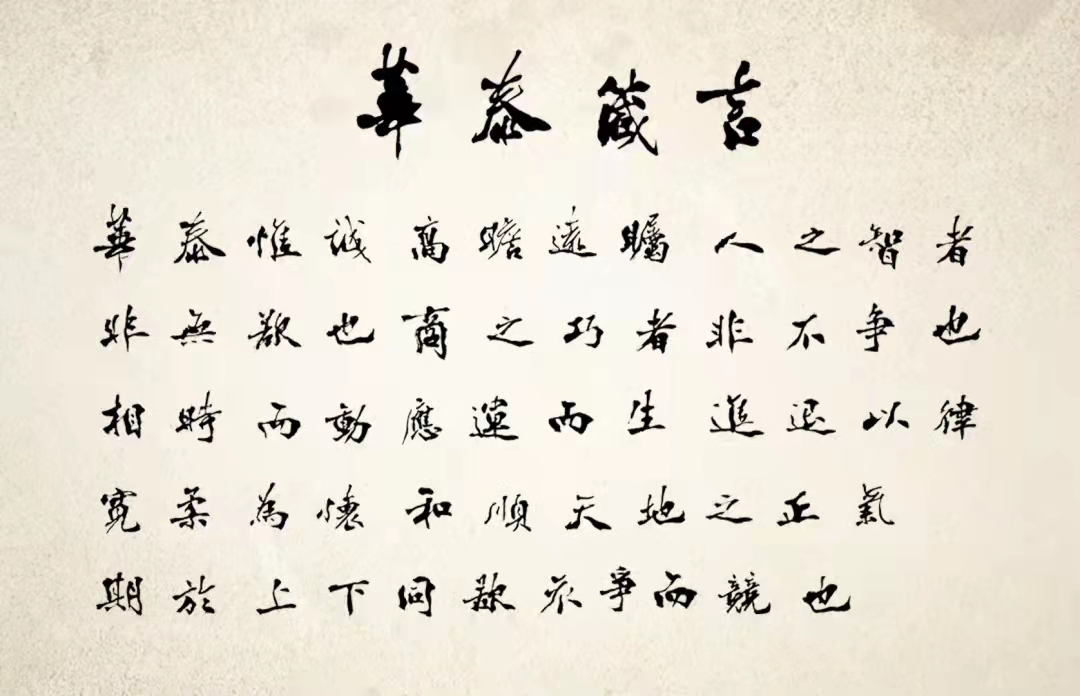 華泰箴言
華泰惟誠高瞻遠矚人之智者
非無欲也商之巧者非不爭也
相時而動應運而生進退以律
寬柔為懷和順天地之正氣
期於上下同欲不爭而競也